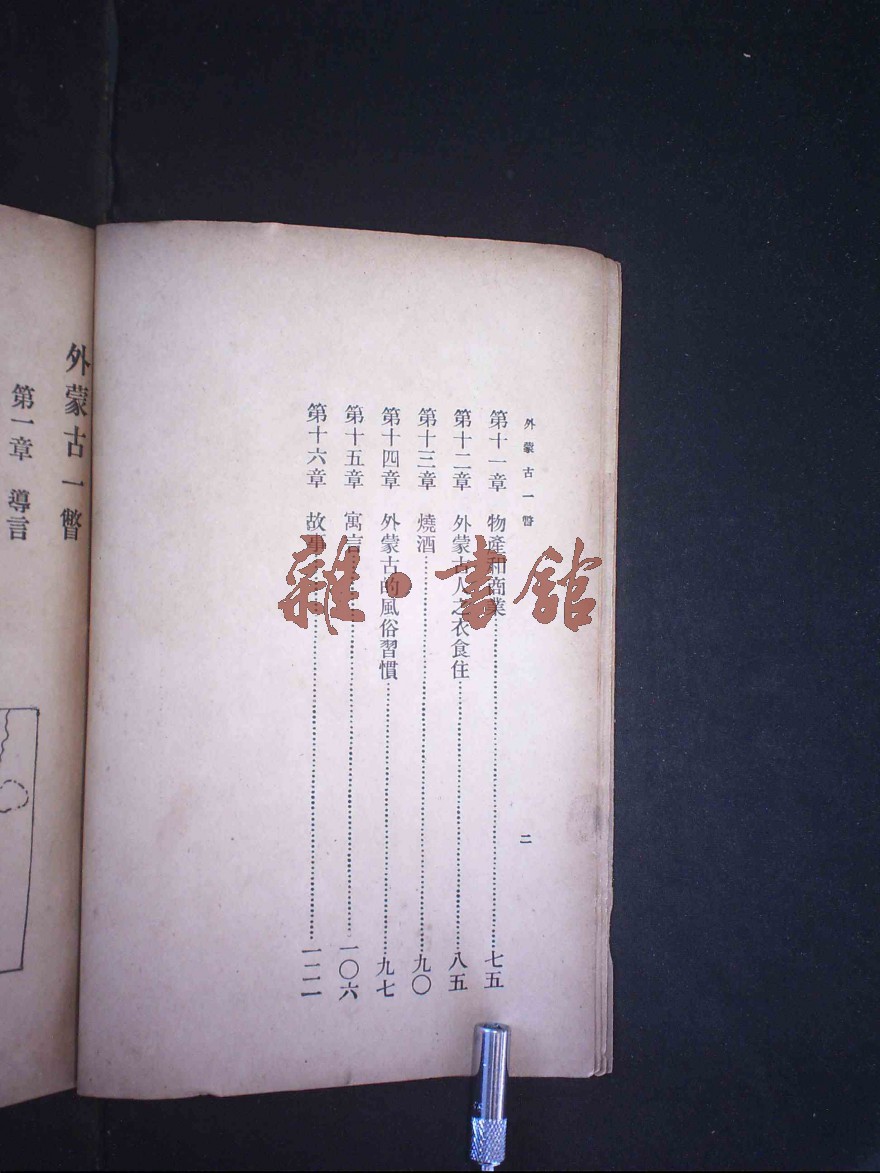 外蒙古一瞥
第十一章 物產和商業……七五
第十二章 外蒙古人之衣食住……八五
第十三章 燒酒……九〇
第十四章 外蒙古的風俗習慣……九七
第十五章 寓言……一〇六
第十六章 故事……一二一
二
外蒙古一瞥
第一章 導言
雜·書館